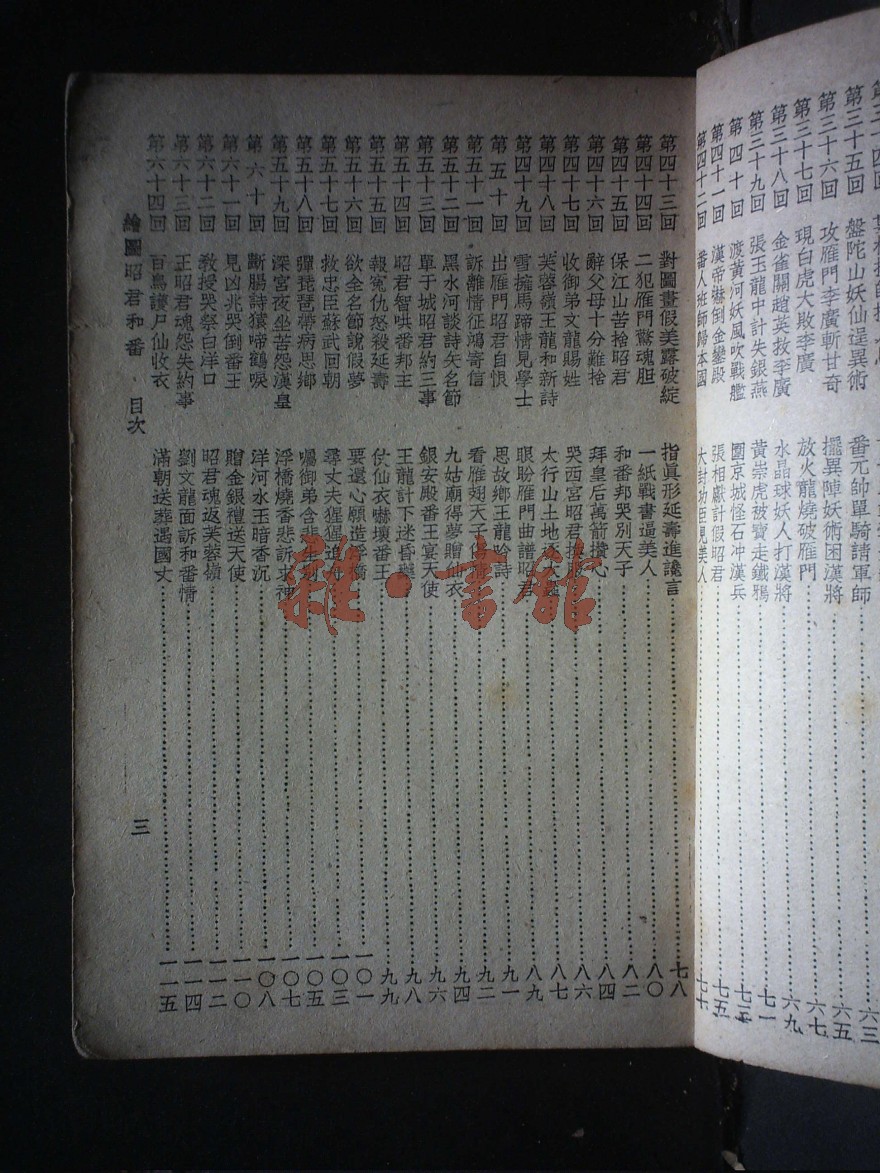 第三十五回 盤陀山妖仙逞異術 番元帥單騎請軍師 六五
第三十六回 攻雁門李廣斬甘奇 擺異陣妖術困漢將 六七
第三十七回 現白虎大敗李廣 放火龍燒破雁門 六九
第三十八回 金雀關趙英救李廣 水晶球妖人打漢將 七一
第三十九回 張玉龍中計失銀燕 黃崇虎被寶走鐵鴉
第四十回 渡黃河妖風吹戰艦 圍京城怪石冲漢兵
第四十一回 漢帝嚇倒金鑾殿 張相獻計假昭君
第四十二回 番人班師歸本國 大封功臣見美人
第四十三回 對圖畫假美露破綻 指眞形延壽進讒言 七八
第四十四回 二犯雁門驚魂胆 一紙戰書逼美人 八〇
第四十五回 保江山苦捨昭君 和番邦哭別天子 八二
第四十六回 辭父母十分難捨 拜皇后萬箭攢心 八四
第四十七回 收御弟文龍賜姓 哭西宮昭君 八六
第四十八回 芙蓉嶺王龍和新詩 太行山土地 八七
第四十九回 雪擁馬蹄情見學士 眼盼雁門曲譜昭君 八九
第五十回 出雁門昭君自恨 思故鄉王龍吟詩 九一
第五十一回 訴離情征鴻寄信 看雁翅天子傷情 九二
第五十二回 黑水河談詩矢名節 九姑廟得夢贈仙衣 九四
第五十三回 單于城昭君約三事 銀安殿番王宴天使 九六
第五十四回 昭君智哄番邦主 王龍計下迷昏 九八
第五十五回 報寃仇怒殺延壽 仗仙衣嚇壞番王 九九
第五十六回 欲全名節說假夢 要還心願造浮橋 一〇一
第五十七回 救忠臣蘇武回朝 尋丈夫猩猩 一〇三
第五十八回 彈琵琶帶病思鄉 囑御弟含悲 一〇五
第五十九回 深宮夜坐苦怨漢皇 浮橋燒香悲訴求神 一〇七
第六十回 斷腸詩猿啼鶴唳 洋河水玉暗香沉 一〇八
第六十一回 見凶兆哭倒番王 贈金銀禮送天使 一一〇
第六十二回 教授哭祭白洋口 昭君魂返芙蓉嶺 一一二
第六十三回 王昭君魂怨失約事 劉文龍面訴和番情 一一四
第六十四回 百鳥護尸仙收衣 滿朝送葬遇國丈 一一五
繪圖昭君和番 目次 三
雜·書館